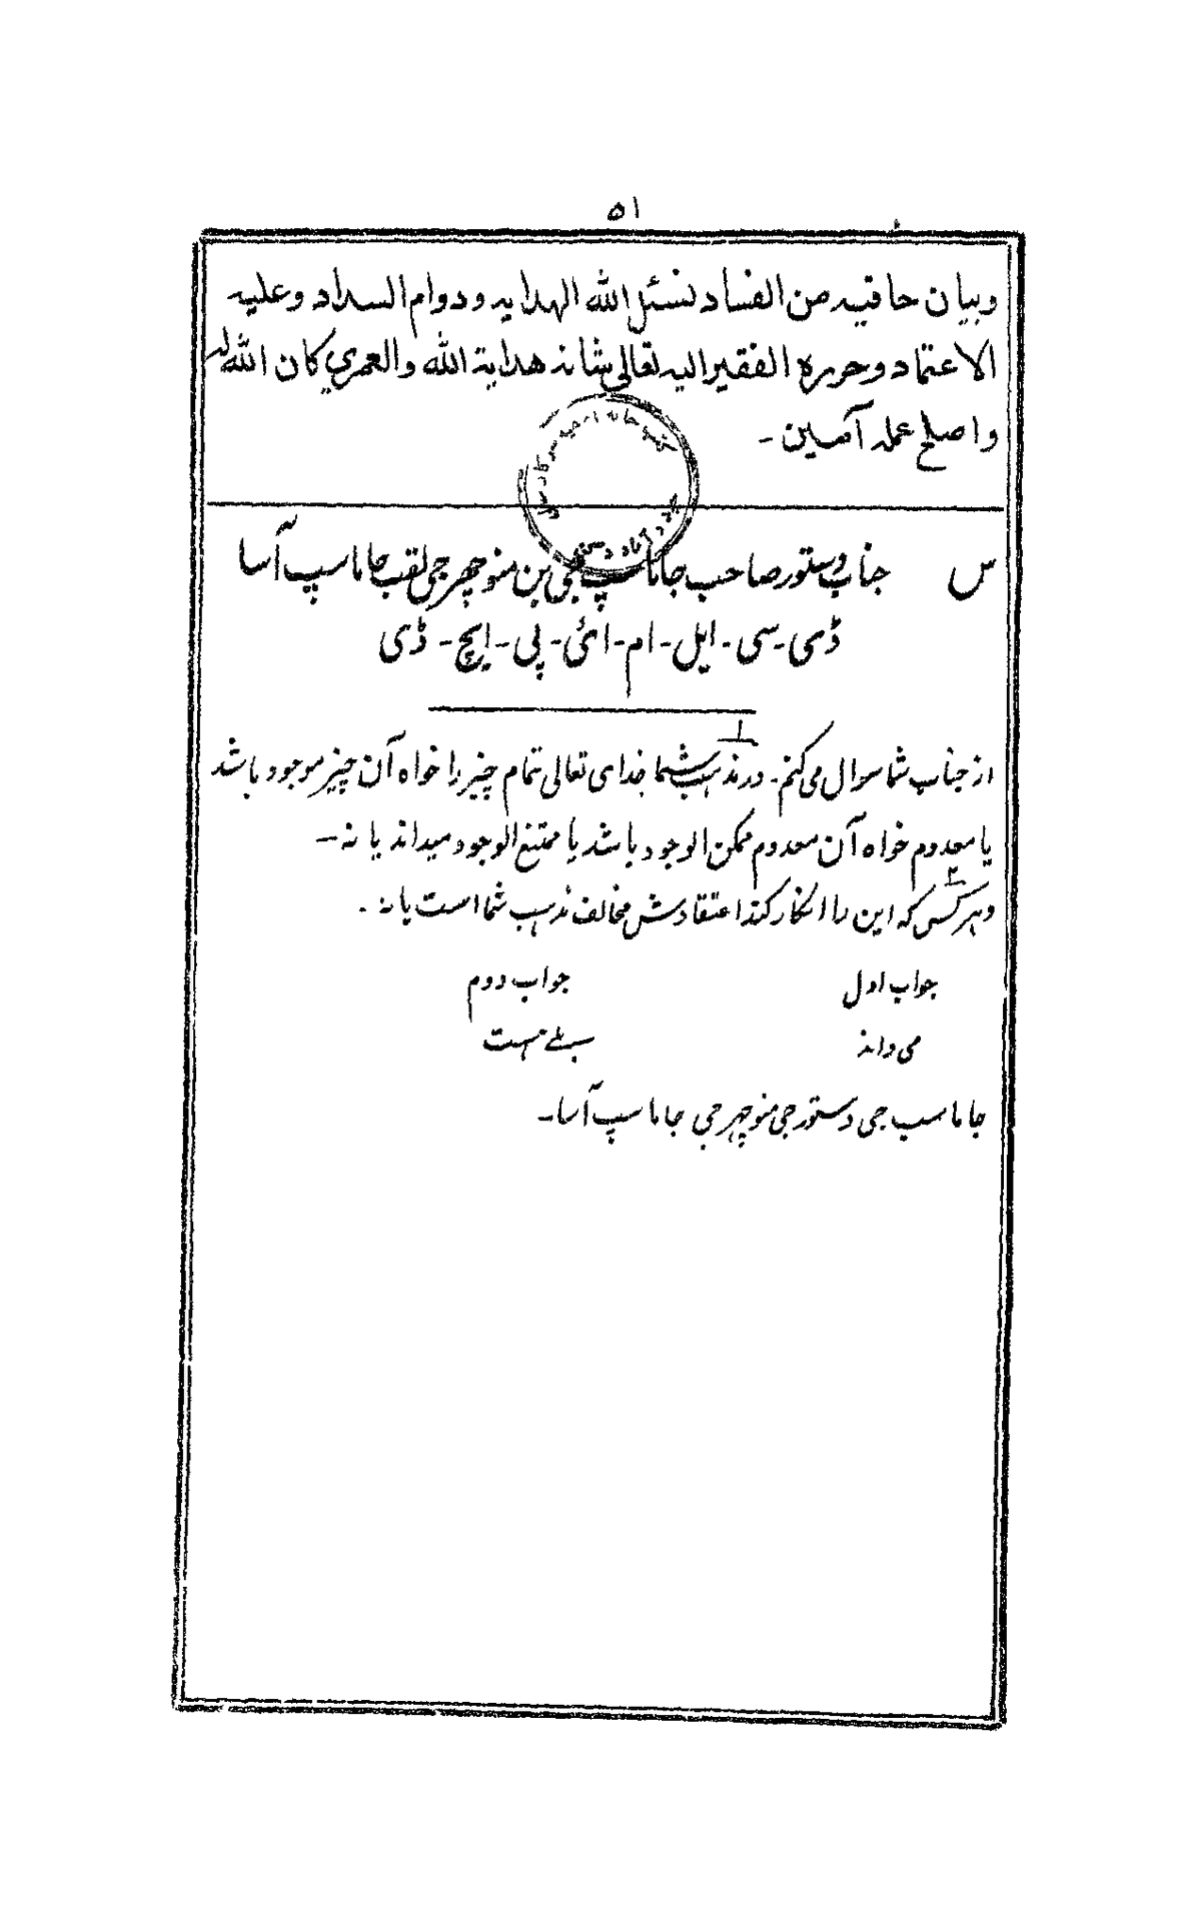 ۵۱
وبيان حافيه من الفساد نسئل الله الهدايه ودوام السداد وعليه
الاعتماد وحرره الفقير اليه تعالى شانه هداية الله والعمري كان الله له
واصلح عمله آمين -
س جناب دستور صاحب جاماسپ جی بن منوچهر جی لقب جاماسپ آسا
ڈی - سی - ایل - ام - ائی - پی - ایچ - ڈی
۱
از جناب شما سوال می کنم - در مذہب شما خدای تعالی تمام چیز را خواه آن چیز موجود باشد
یا معدوم خواه آن معدوم ممکن الوجود باشد یا ممتنع الوجود میداند یا نه -
۲
وہر کس که این را انکار کند اعتقادش مخالف مذہب شما است یا نه .
جواب اول جواب دوم
می داند بلے ہست
جاماسپ جی دستور جی منوچہر جی جاماسپ آسا -